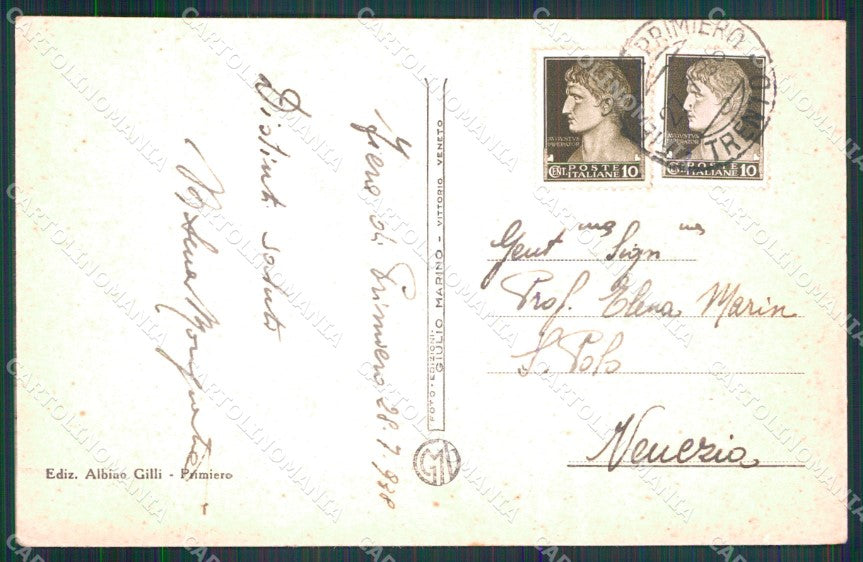 Fiera di Primiero 28.7.938
Distinti saluti
Ediz. Albino Gilli - Primiero
FOTO-EDIZIONI
GIULIO MARINO - VITTORIO VENETO
GM
AVGVSTVS
IMPERATOR
CENT. POSTE ITALIANE 10
AVGVSTVS
IMPERATOR
CENT. POSTE ITALIANE 10
PRIMIERO
(TRENTO)
Gent ma Sign na
Prof. Elena Marin
S. Polo
Venezia
CARTOLINOMANIA